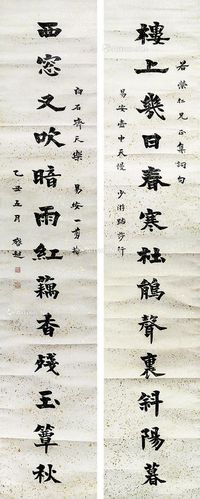 若榮仁兄正集詞句
樓上幾日春寒杜鵑聲裏斜陽暮
易安壺中天慢 少游踏莎行
白石齊天樂 易安一剪梅
西窓又吹暗雨紅藕香殘玉簟秋
乙丑五月 啟超